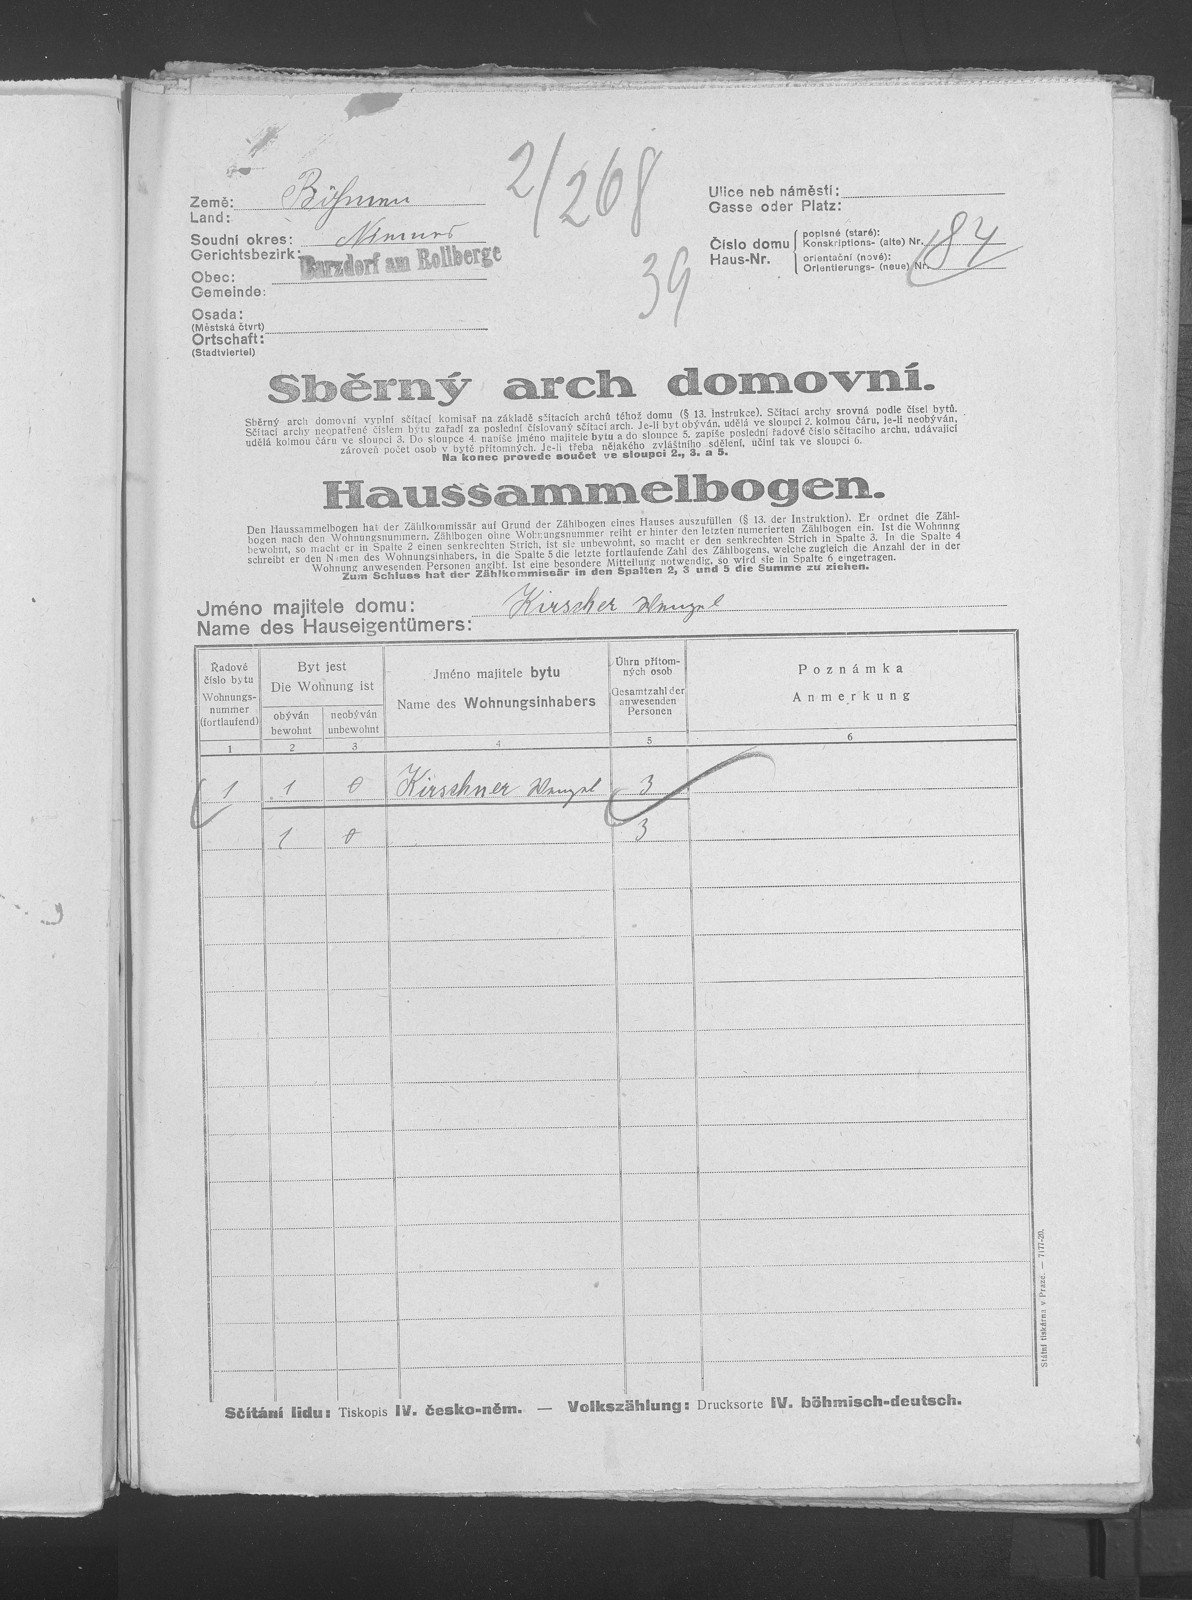 2/268
39
Země: Böhmen
Land:
Soudní okres: Niemes
Gerichtsbezirk:
Barzdorf am Rollberge
Obec:
Gemeinde:
Osada:
(Městská čtvrt)
Ortschaft:
(Stadtviertel)
Ulice neb náměstí:
Gasse oder Platz:
Číslo domu popisné (staré):
Haus-Nr. Konskriptions- (alte) Nr. 84
orientační (nové):
Orientierungs- (neue) Nr.
Sběrný arch domovní.
Sběrný arch domovní vyplní sčítací komisař na základě sčítacích archů téhož domu (§ 13. Instrukce). Sčítací archy srovná podle čísel bytů.
Sčítací archy neopatřené číslem bytu zařadí za poslední číslovaný sčítací arch. Je-li byt obýván, udělá ve sloupci 2. kolmou čáru, je-li neobýván,
udělá kolmou čáru ve sloupci 3. Do sloupce 4. napíše jméno majitele bytu a do sloupce 5. zapíše poslední řadové číslo sčítacího archu, udávající
zároveň počet osob v bytě přítomných. Je-li třeba nějakého zvláštního sdělení, učiní tak ve sloupci 6.
Na konec provede součet ve sloupci 2., 3. a 5.
Haussammelbogen.
Den Haussammelbogen hat der Zählkommissär auf Grund der Zählbogen eines Hauses auszufüllen (§ 13. der Instruktion). Er ordnet die Zähl-
bogen nach den Wohnungsnummern. Zählbogen ohne Wohnungsnummer reiht er hinter den letzten numerierten Zählbogen ein. Ist die Wohnung
bewohnt, so macht er in Spalte 2 einen senkrechten Strich, ist sie unbewohnt, so macht er den senkrechten Strich in Spalte 3. In die Spalte 4
schreibt er den Namen des Wohnungsinhabers, in die Spalte 5 die letzte fortlaufende Zahl des Zählbogens, welche zugleich die Anzahl der in der
Wohnung anwesenden Personen angibt. Ist eine besondere Mitteilung notwendig, so wird sie in Spalte 6 eingetragen.
Zum Schluss hat der Zählkommissär in den Spalten 2, 3 und 5 die Summe zu ziehen.
Jméno majitele domu: Kirscher Wenzel
Name des Hauseigentümers:
Řadové
číslo bytu
Wohnungs-
nummer
(fortlaufend)
Byt jest
Die Wohnung ist
obýván
bewohnt
neobýván
unbewohnt
Jméno majitele bytu
Name des Wohnungsinhabers
Úhrn přítom-
ných osob
Gesamtzahl der
anwesenden
Personen
Poznámka
Anmerkung
1 2 3 4 5 6
1 1 0 Kirschner Wenzel 3
1 0 3
Sčítání lidu: Tiskopis IV. česko-něm. — Volkszählung: Drucksorte IV. böhmisch-deutsch.
Státní tiskárna v Praze. — 7177-20.